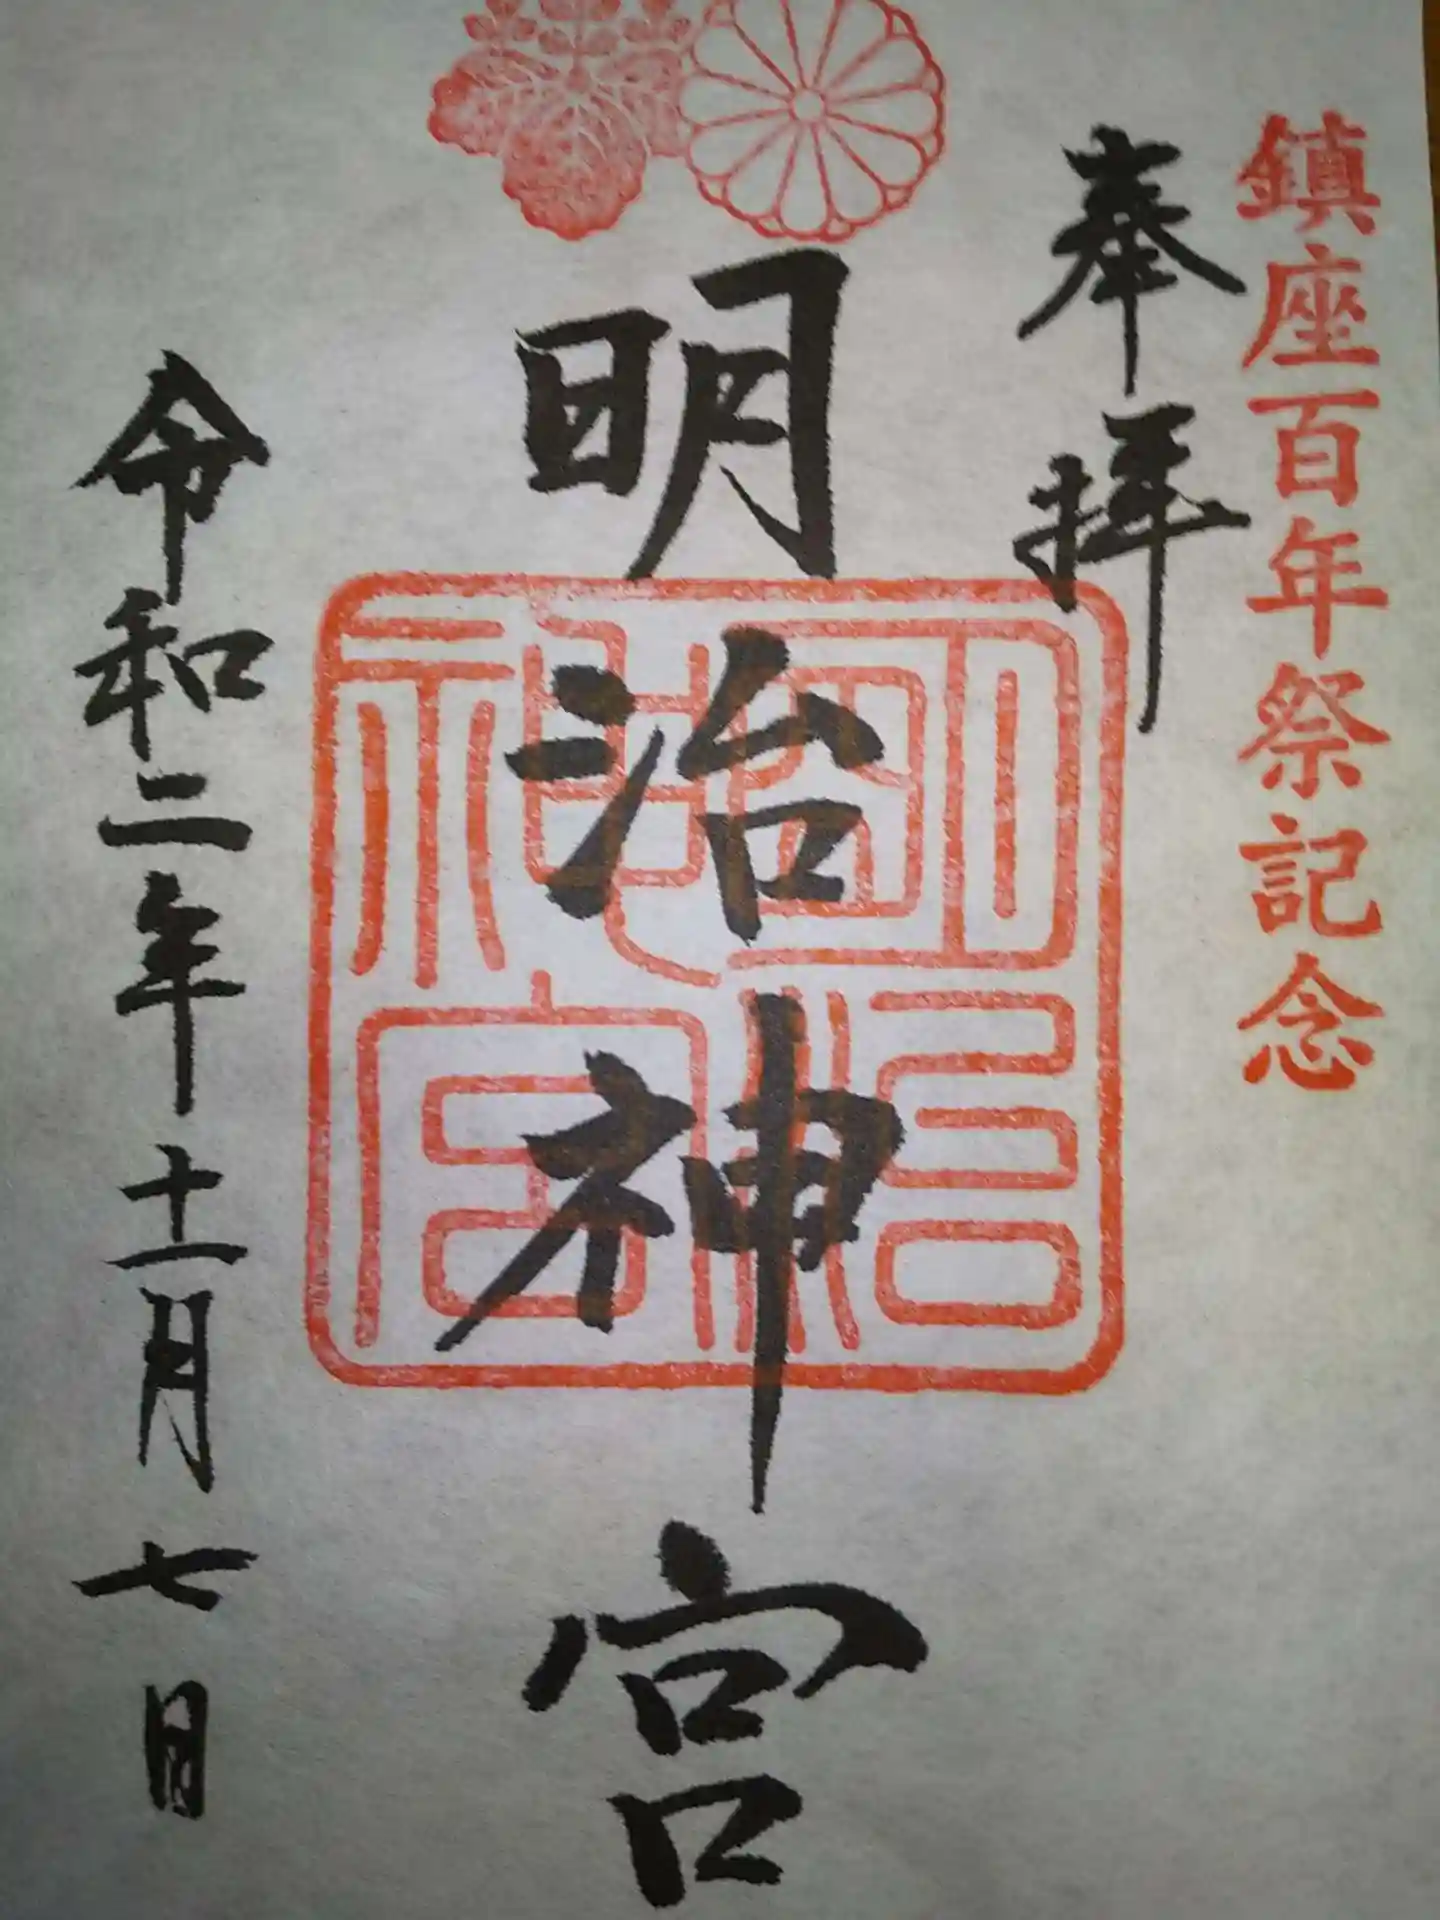 鎮座百年祭記念
奉拝
明治神宮
明治神宮
令和二年十一月七日